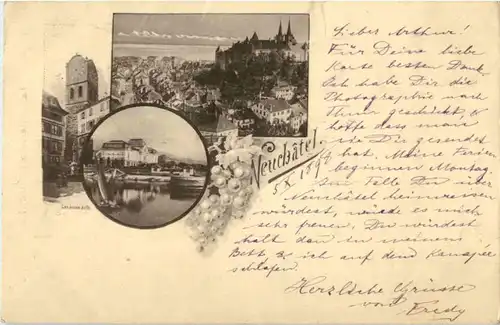 Lieber Arthur!
Für Deine liebe
Karte besten Dank.
Ich habe Dir die
Photographie nach
geschickt, &
hoffe dass man
sie Dir gesendet
hat. Meine Ferien
beginnen Montag.
Im Falle Du über
Neuchâtel heimreisen
würdest, würde es mich
sehr freuen. Du würdest
halt dan in meinem
Bett & ich auf dem Kanapée
schlafen.
Herzlsche Grüsse
von Fredy
Neuchâtel
5 X 1897